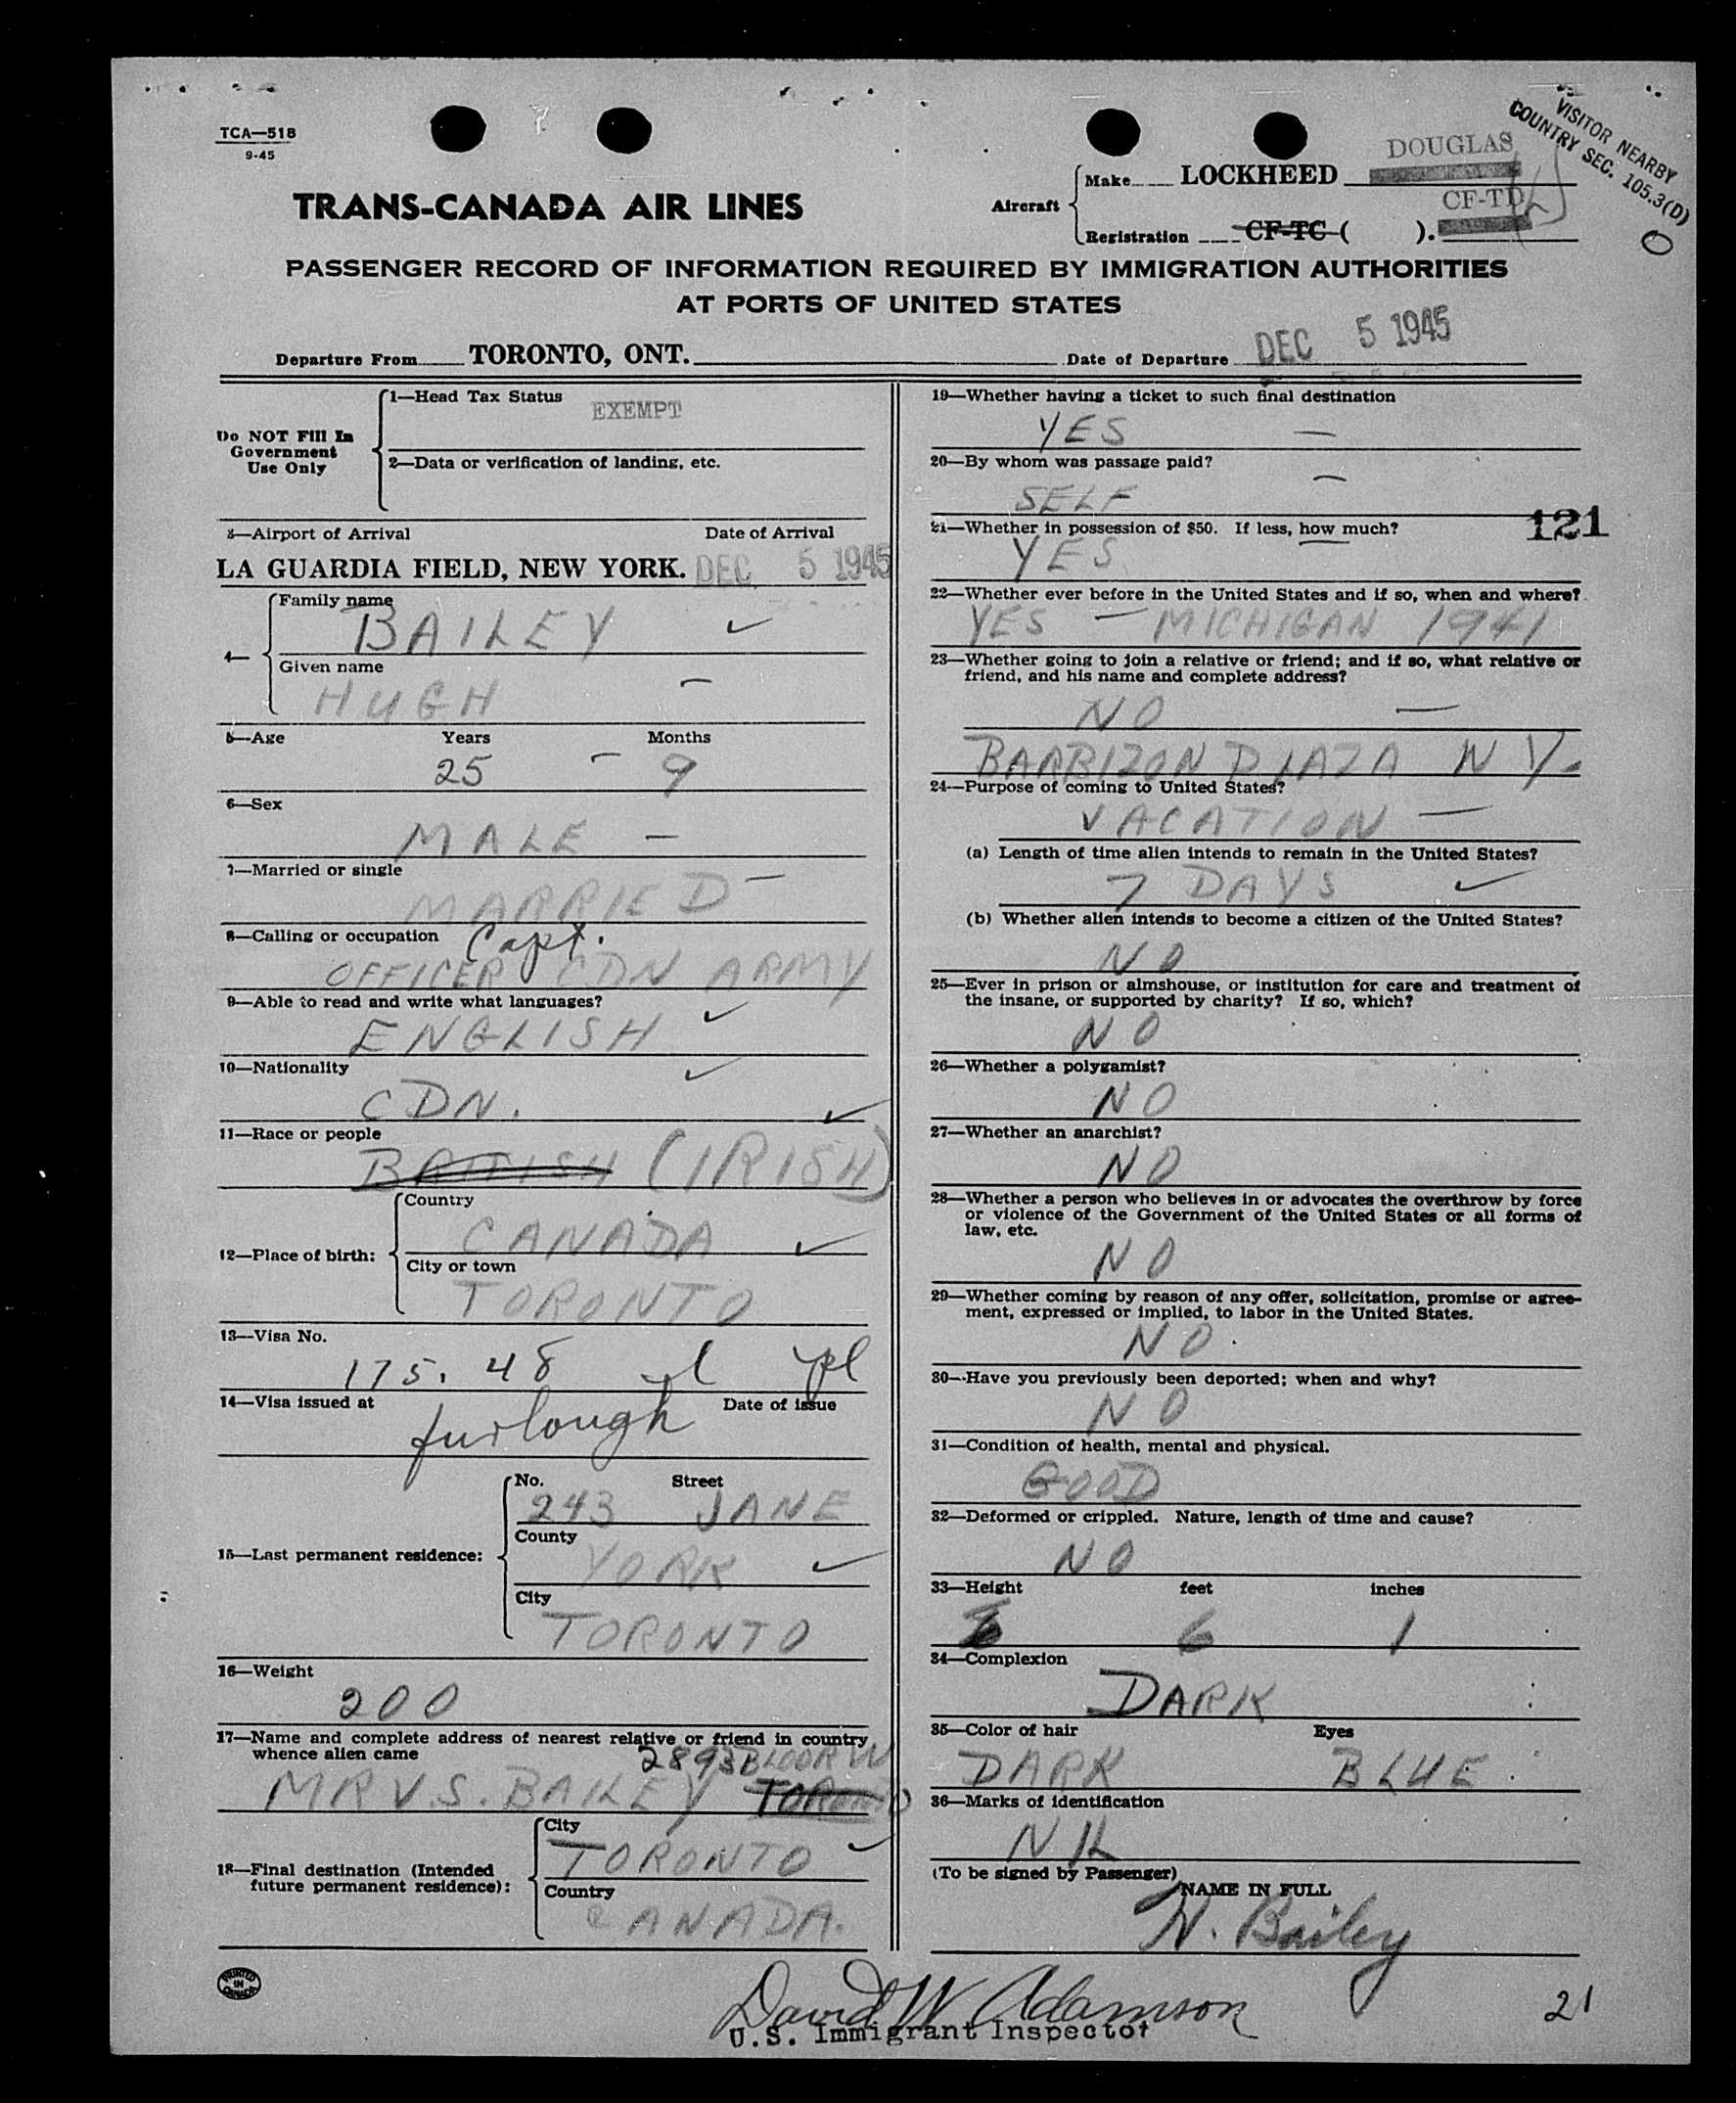 TCA—518
9-45
VISITOR NEARBY
COUNTRY SEC. 105.3(D)
TRANS-CANADA AIR LINES
Aircraft
Make LOCKHEED DOUGLAS
Registration CF-TC ( ). CF-TD
PASSENGER RECORD OF INFORMATION REQUIRED BY IMMIGRATION AUTHORITIES
AT PORTS OF UNITED STATES
Departure From TORONTO, ONT. Date of Departure DEC 5 1945
Do NOT Fill In
Government
Use Only
1—Head Tax Status
EXEMPT
2—Data or verification of landing, etc.
3—Airport of Arrival Date of Arrival
LA GUARDIA FIELD, NEW YORK. DEC 5 1945
4—
Family name
BAILEY
Given name
HUGH
5—Age Years Months
25 — 9
6—Sex
MALE —
7—Married or single
MARRIED —
8—Calling or occupation Capt.
OFFICER CDN ARMY
9—Able to read and write what languages?
ENGLISH
10—Nationality
CDN.
11—Race or people
BRITISH (IRISH)
12—Place of birth:
Country
CANADA
City or town
TORONTO
13—Visa No.
175. 48
14—Visa issued at Date of issue
furlough
15—Last permanent residence:
No. Street
243 JANE
County
YORK
City
TORONTO
16—Weight
200
17—Name and complete address of nearest relative or friend in country
whence alien came
2893 BLOOR W
MR V.S. BAILEY TORONTO
18—Final destination (Intended
future permanent residence):
City
TORONTO
Country
CANADA.
19—Whether having a ticket to such final destination
YES —
20—By whom was passage paid?
SELF —
21—Whether in possession of $50. If less, how much?
121
YES
22—Whether ever before in the United States and if so, when and where?
YES — MICHIGAN 1941
23—Whether going to join a relative or friend; and if so, what relative or
friend, and his name and complete address?
NO —
BARBIZON PLAZA N Y.
24—Purpose of coming to United States?
VACATION —
(a) Length of time alien intends to remain in the United States?
7 DAYS
(b) Whether alien intends to become a citizen of the United States?
NO
25—Ever in prison or almshouse, or institution for care and treatment of
the insane, or supported by charity? If so, which?
NO
26—Whether a polygamist?
NO
27—Whether an anarchist?
NO
28—Whether a person who believes in or advocates the overthrow by force
or violence of the Government of the United States or all forms of
law, etc.
NO
29—Whether coming by reason of any offer, solicitation, promise or agree-
ment, expressed or implied, to labor in the United States.
NO.
30—Have you previously been deported; when and why?
NO
31—Condition of health, mental and physical.
GOOD
32—Deformed or crippled. Nature, length of time and cause?
NO
33—Height feet inches
6 1
34—Complexion
DARK
35—Color of hair Eyes
DARK BLUE
36—Marks of identification
NIL
(To be signed by Passenger)
NAME IN FULL
H. Bailey
PRINTED
IN
CANADA
David W Adamson
U.S. Immigrant Inspector
21